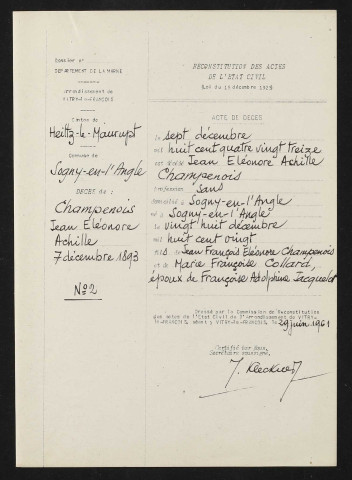 DEPARTEMENT DE LA MARNE
arrondissement de
VITRY-LE-FRANCOIS
Canton de
Heiltz-le-Maurupt
Commune de
Sogny-en-l'Angle
DECES de :
Champenois
Jean Eléonore
Achille
7 décembre 1893
N° 2
RECONSTITUTION DES ACTES
DE L'ETAT CIVIL
ACTE DE DECES
Le sept décembre
mil huit cent quatre vingt treize
est décédé Jean Eléonore Achille
Champenois
profession sans
domicilié à Sogny-en-l'Angle
né à Sogny-en-l'Angle
le vingt huit décembre
mil huit cent vingt
fils de Jean François Eléonore Champenois
et de Marie Françoise Collard,
époux de Françoise Adolphine Jacquelot
Dressé par la Commission de Reconstitution
des actes de l'Etat Civil de l'arrondissement de VITRY-
le-FRANCOIS, séant à VITRY-le-FRANCOIS, le 29 juin 1961
Certifié par Nous,
Secrétaire soussigné,